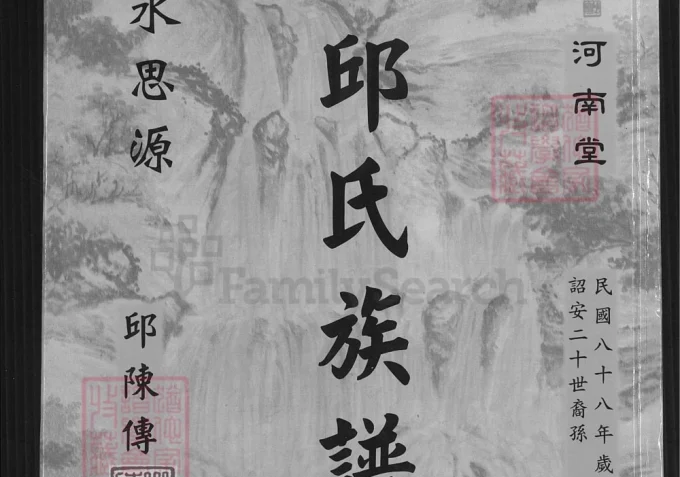 河南堂
民國八十八年歲
詔安二十世裔孫
邱氏族譜
水思源
邱陳傳
FamilySearch